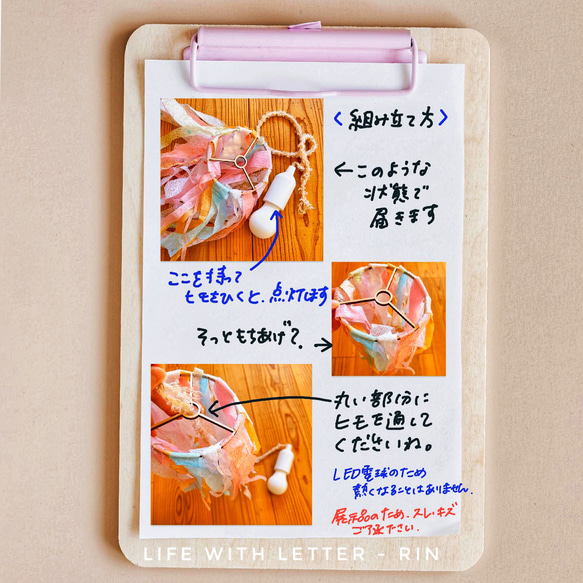 〈組み立て方〉
←このような
状態で
届きます
ここを持って
ヒモをひくと、点灯します
そっともちあげて、→
丸い部分に
ヒモを通して
くださいね。
LED電球のため
熱くなることはありません。
展示品のため、スレ・キズ
ご了承ください。
LIFE WITH LETTER - RIN